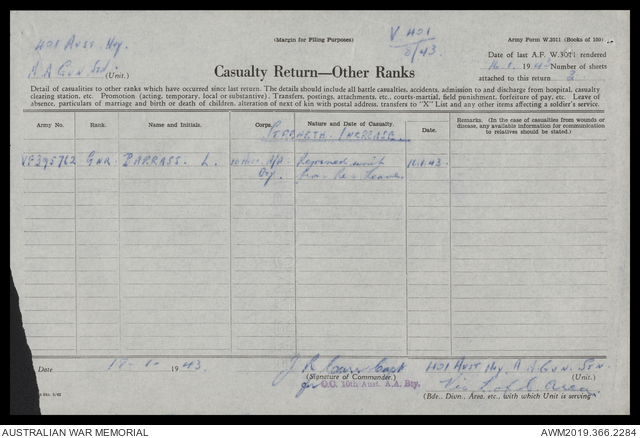 (Margin for Filing Purposes)
Army Form W.3011 (Books of 100)
V 401
8/43
401 Aust Hy.
A A Gun Stn. (Unit.)
Date of last A.F. W.3011 rendered
16.1.1943 Number of sheets
attached to this return
Casualty Return—Other Ranks
Detail of casualties to other ranks which have occurred since last return. The details should include all battle casualties, accidents, admission to and discharge from hospital, casualty
clearing station, etc. Promotion (acting, temporary, local or substantive). Transfers, postings, attachments, etc., courts-martial, field punishment, forfeiture of pay, etc. Leave of
absence, particulars of marriage and birth or death of children, alteration of next of kin with postal address, transfers to "X" List and any other items affecting a soldier's service.
Army No.
Rank.
Name and Initials.
Corps.
Nature and Date of Casualty.
Date.
Remarks. (In the case of casualties from wounds or
disease, any available information for communication
to relatives should be stated.)
Strength Increase
VF395762 Gnr BARRASS. L. Rejoined unit 16.1.43.
Bty. from Rec Leave.
Date 1943
(Signature of Commander.)
for O.C. 10th Aust. A.A. Bty.
401 Aust Hy. A A Gun Stn.
(Unit.)
Vic L of C Area.
(Bde., Divn., Area, etc., with which Unit is serving)
AUSTRALIAN WAR MEMORIAL
AWM2019.366.2284